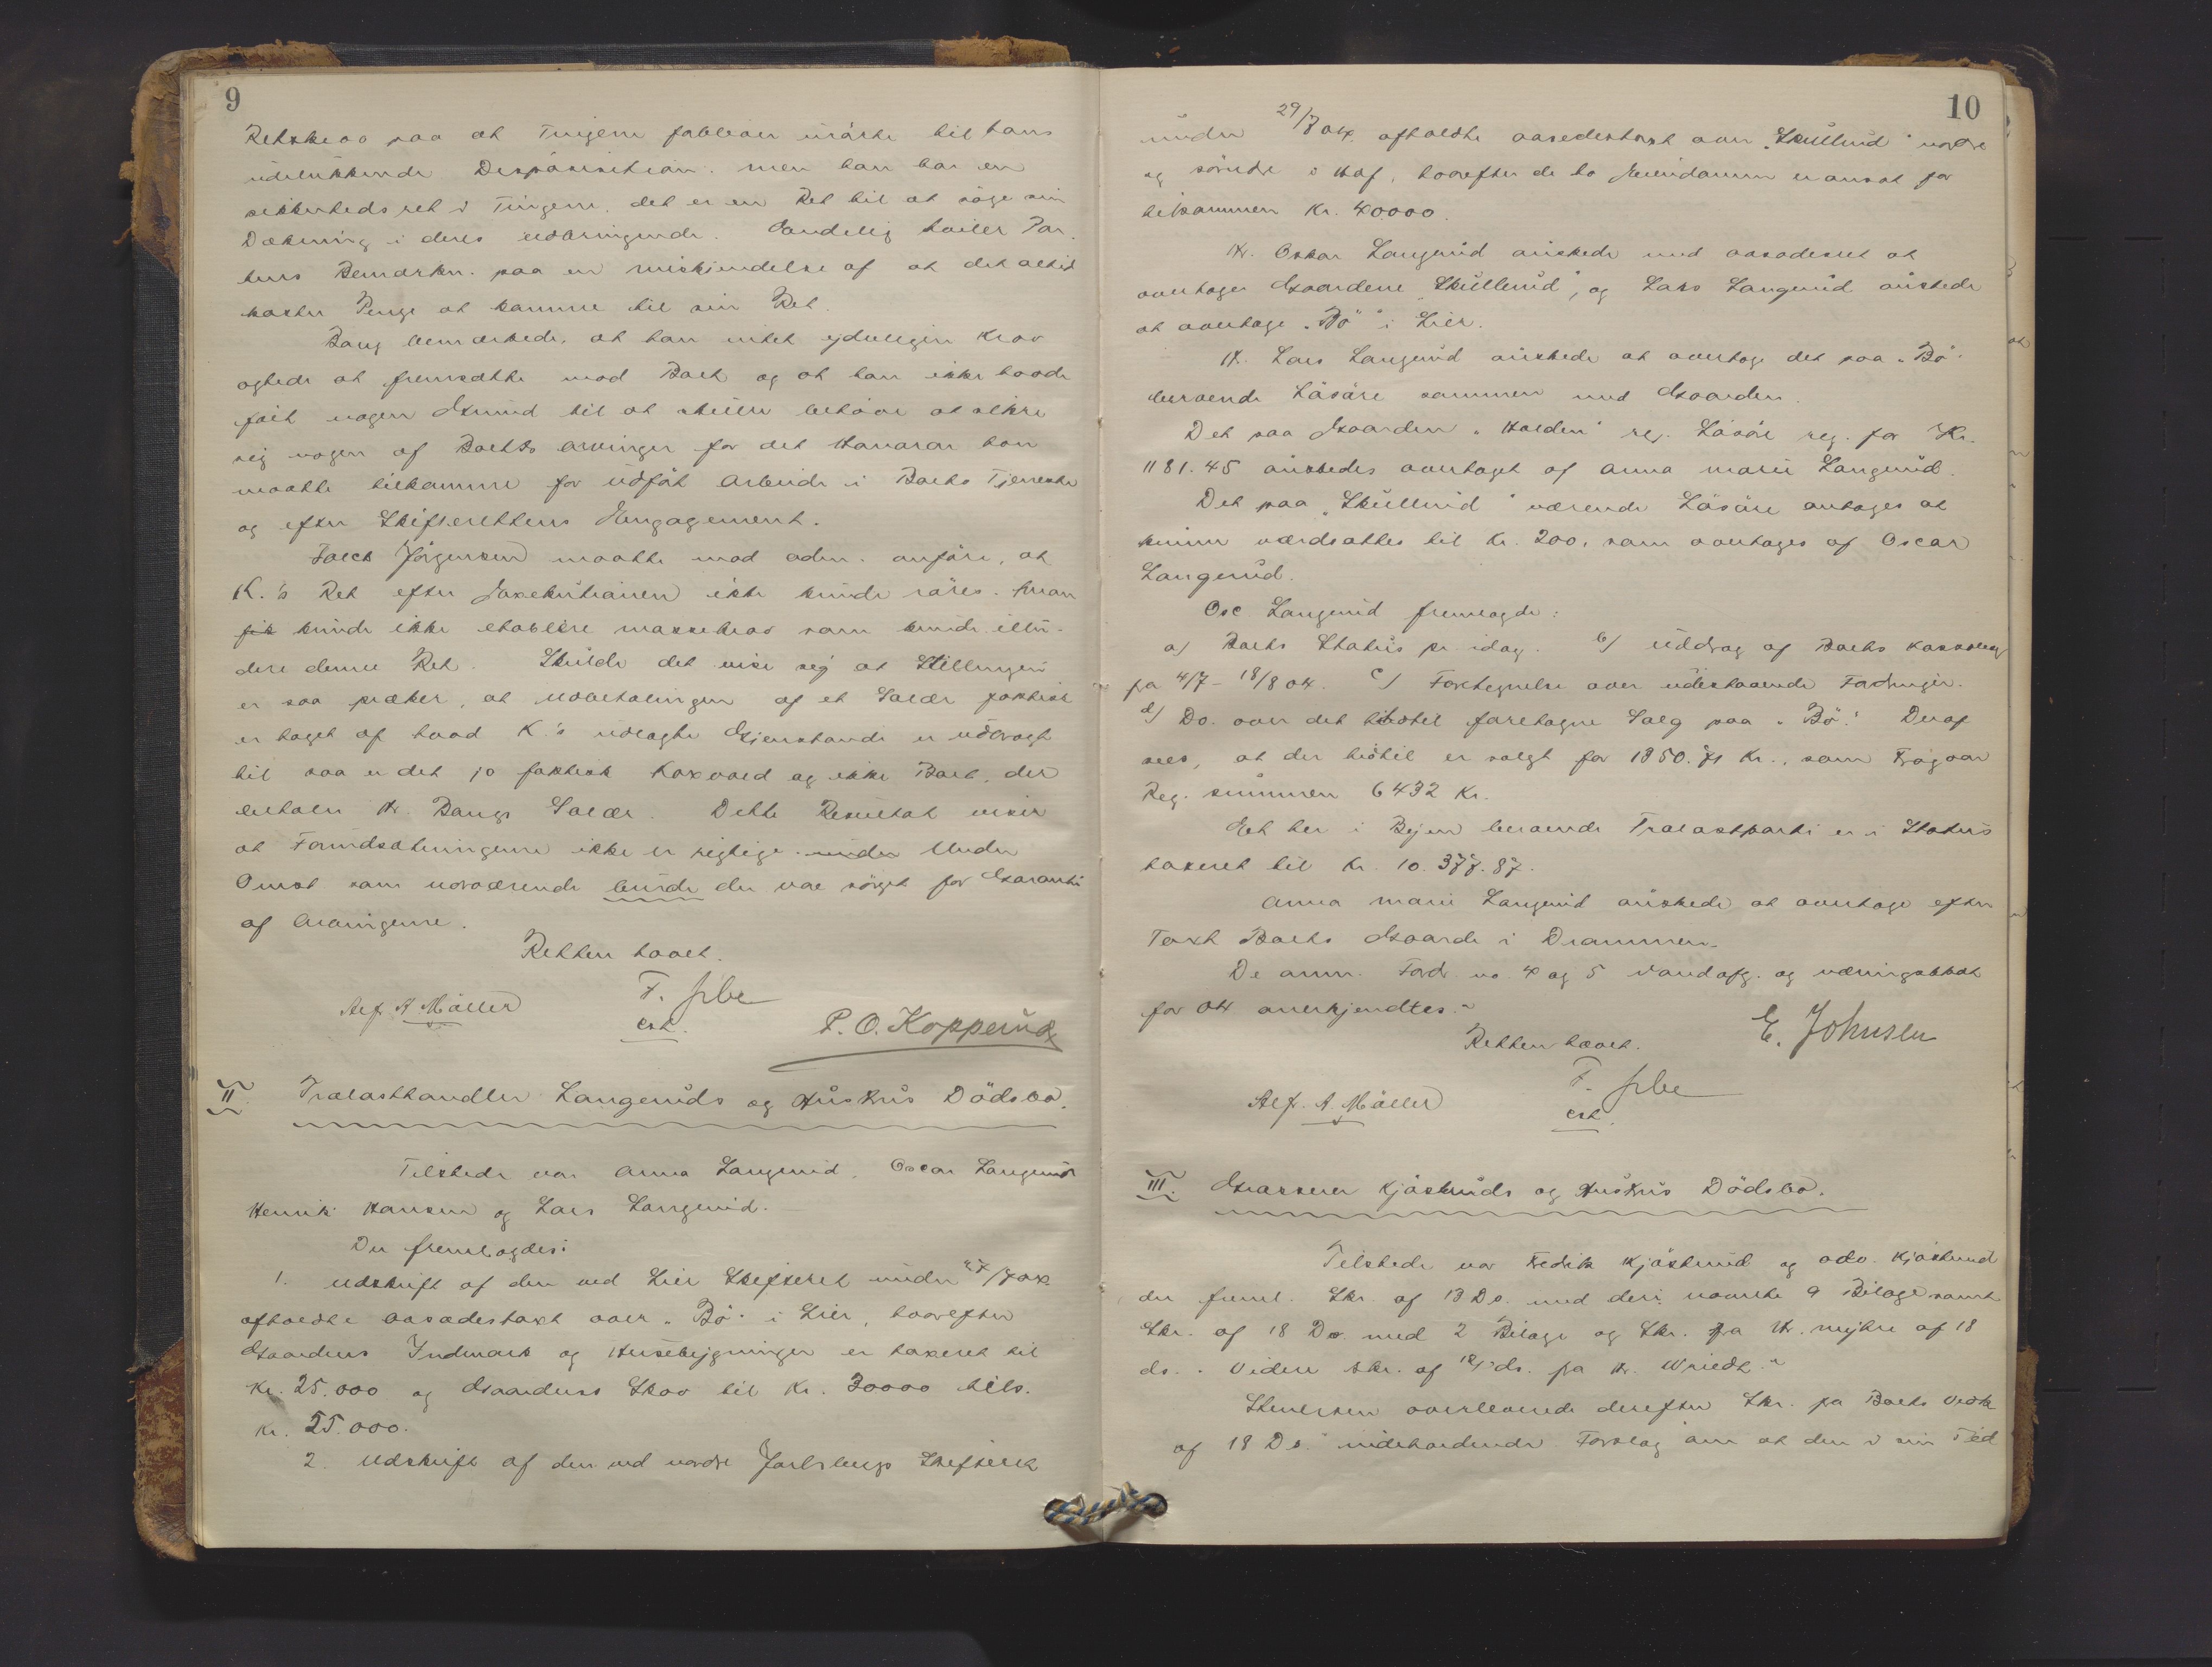 9
Retskrav paa at Tingene forbliver urørte til hans
udelukkende Desposisition. men han har en
sikkerhedsret i Tingene, det er en Ret til at søge sin
Dækning i deres udbringende. Sandelig hviler Par-
tens Bemærkn. paa en miskjendelse af at det altid
koster Penge at komme til sin Ret.
Bang bemærkede, at han intet yderligere Krav
agtede at fremsætte mod Boet og at han ikke havde
fåt nogen Grund til at skulle behøve at sikre
sig nogen af Boets arvinger for det Honorar han
maatte tilkomme for udført Arbeide i Boets Tjeneste
og efter Skifterettens Engagement.
Falch Jørgensen maatte mod adm. anføre, at
K.'s Ret efter Exekutionen ikke kunde røres. Man
fik kunde ikke etablere massekrav som kunde illu-
dere denne Ret. Skulde det vise sig at Stillingen
er saa prækær, at udbetalingen af et Salær faktisk
er taget af hvad K.'s udlagte Gjenstande er udbragt
til saa er det jo faktisk Koxvold og ikke Boet, der
betaler Hr. Bangs Salær. Dette Resultat viser
at Forudsætningerne ikke er rigtige. under Under
Omst som nærværende burde der være sørget for Garanti
af Arvingerne.
Retten hævet.
Alf A Møller
F.
cst.
P. O. Kopperud
II. Trælasthandler Langeruds og Hustrus Dødsbo.
Tilstede var Anna Langerud, Oscar Langerud
Henrik Hansen og Lars Langerud.
Der fremlagdes:
1. Udskrift af den ved Lier Skifteret under 27/7 04
afholdte aasædestaxt over "Bø" i Lier, hvorefter
Gaardens Indmark og Husebygninger er taxeret til
Kr. 25.000 og Gaardens Skov til Kr. 30000 tils.
Kr. 55.000.
2. Udskrift af den ved nordre Jarlsbergs Skifteret
10
under 29/7 04 afholdte aasedestaxt over "Skullerud" nordre
og søndre i Hof, hvorefter de to Eiendomme er ansat for
tilsammen Kr. 40000.
Hr. Oskar Langerud ønskede med aasædesret at
overtage Gaardene "Skullerud", og Lars Langerud ønskede
at overtage "Bø" i Lier.
Hr. Lars Langerud ønskede at overtage det paa "Bø"
beroende Løsøre sammen med Gaarden.
Det paa Gaarden "Holden" reg. Løsøre reg. for Kr.
1181.45 ønskedes overtaget af Anna Marie Langerud.
Det paa "Skullerud" værende Løsøre antages at
kunne værdsættes til Kr. 200, som overtages af Oscar
Langerud.
Osc Langerud fremlagde:
a) Boets Status pr idag. b) uddrag af Boets kassebog
fra 4/7 - 18/8 04. c) Fortegnelse over udestaaende Fordringer.
d) Do. over det hidtil foretagne Salg paa "Bø". Deraf
sees, at der hidtil er solgt for 1350.71 Kr., som
Reg. summen 6432 Kr.
Et her i Byen beroende Trælastparti er i Status
taxeret til Kr. 10.377.87.
Anna Marie Langerud ønskede at overtage efter
Taxt Boets Gaarde i Drammen.
De anm. Ford. no. 4 og 5 vandafg. og næringsskat
for 04 anerkjendtes.
Retten hævet.
E. Johnsen
Alf. A. Møller
F.
cst.
III. Grosserer Kjøsteruds og Hustrus Dødsbo.
Tilstede var Fredrik Kjøsterud og adv. Kjøsterud
der freml. Skr. af 13 Ds. med deri nævnte 9 Bilage samt
Skr. af 18 Ds. med 2 Bilage og Skr. fra Hr. af 18
ds. Videre skr. af ds. fra Hr. Wriedt.
overleverede derefter Skr. fra Boets
af 18 Ds. indeholdende Forslag om at den i sin Tid